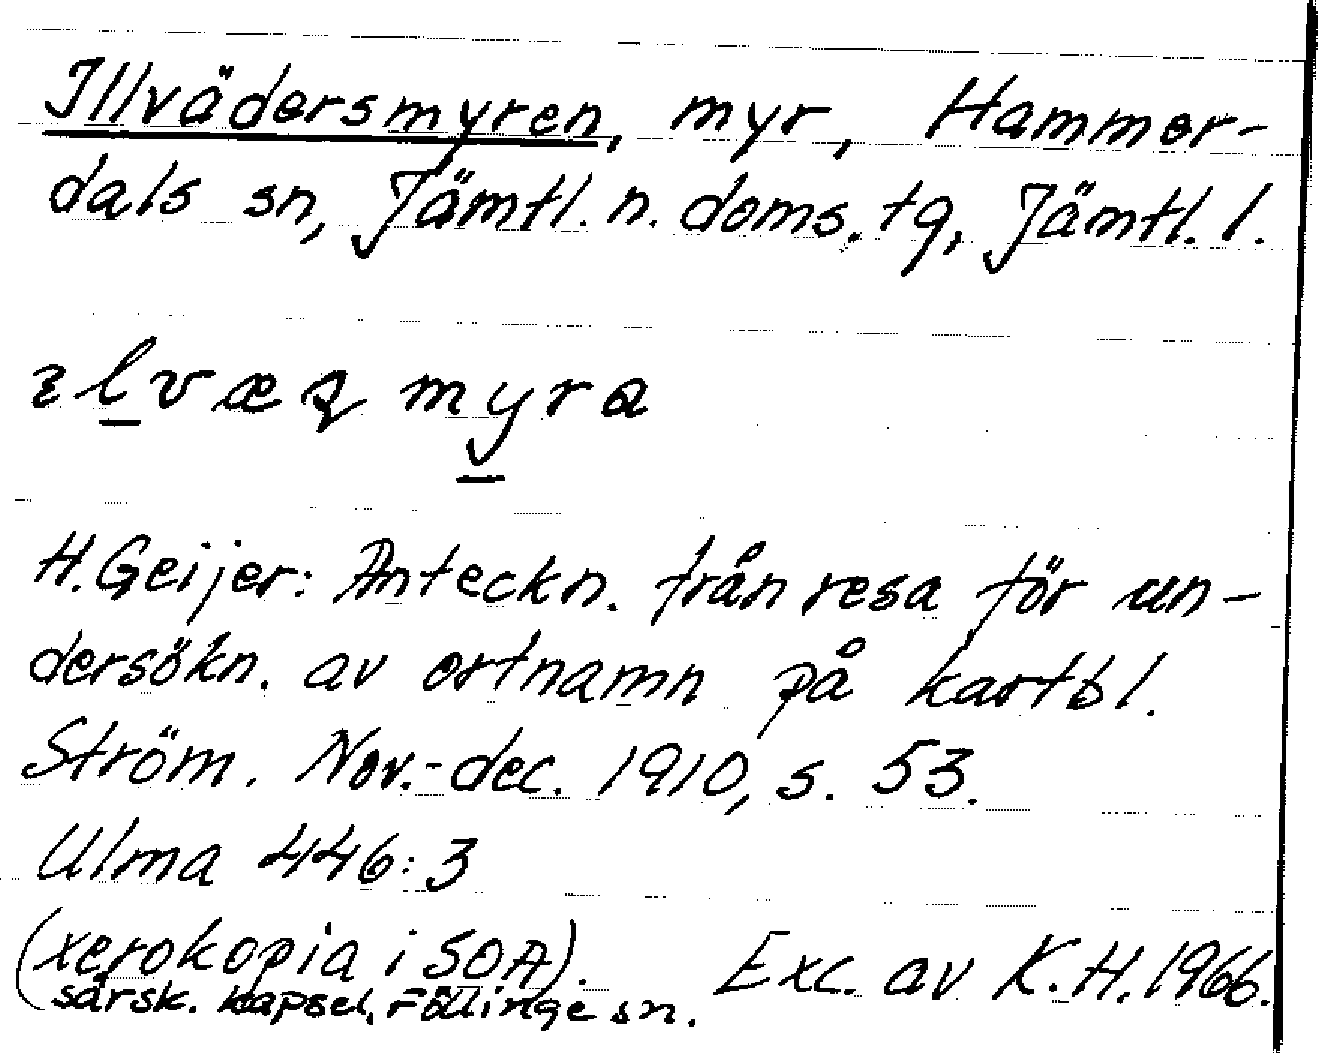 Illvädersmyren, myr, Hammer-
dals sn, Jämtl. n. doms. tg, Jämtl. l.
ılvæq myra
H. Geijer: Anteckn. från resa för un-
dersökn. av ortnamn på kartbl.
Ström. Nov.-dec. 1910, s. 53.
Ulma 446:3
(xerokopia i SOA). Exc. av K.H. 1966.
särsk. kapsel, Föllinge sn.